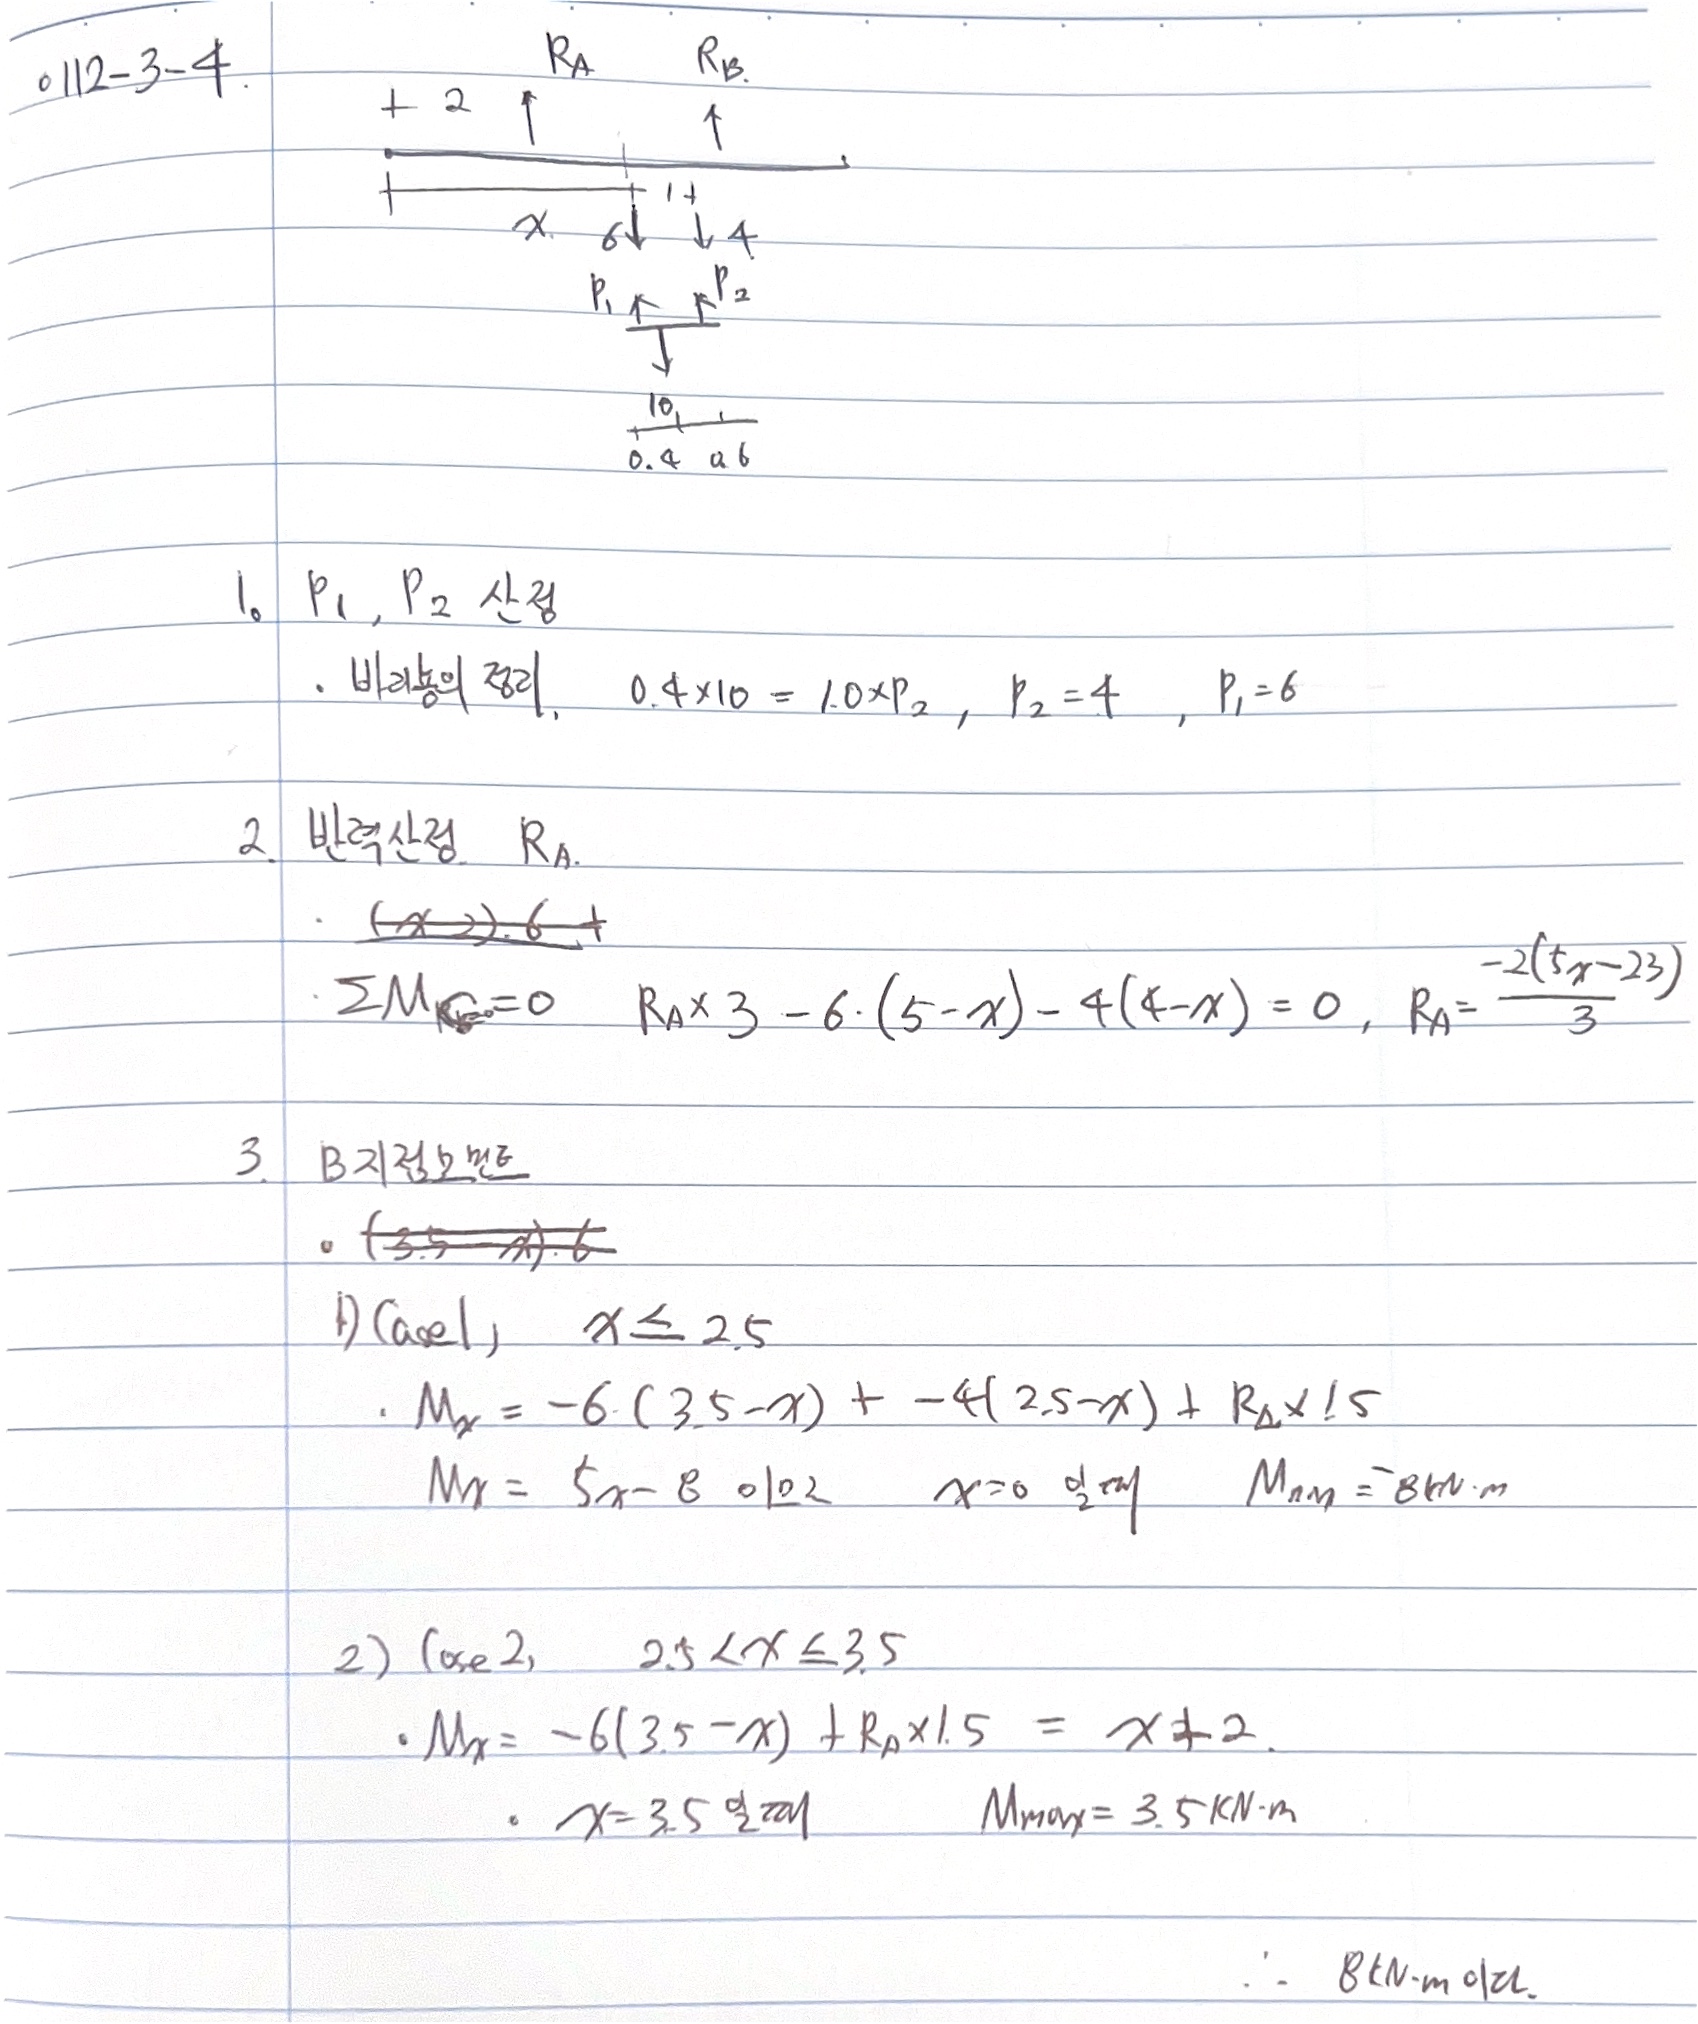 o 112-3-4.
RA RB.
+ 2
1+
x. 6 4
P1 P2
10
0.4 0.6
1. P1, P2 산정
· 바리뇽의 정리. 0.4×10 = 1.0×P2, P2 = 4, P1 = 6
2. 반력산정 RA.
· (x-2)·6 +
· ΣM =0 RA×3 - 6·(5-x) - 4(4-x) = 0, RA = -2(5x-23)/3
3. B지점모멘트
· (3.5-x)·6
1) Case1, x ≤ 2.5
· Mx = -6·(3.5-x) + -4(2.5-x) + RA×1.5
Mx = 5x-8 이므로 x=0 일때 = -8kN·m
2) Case 2, 2.5 < x ≤ 3.5
· Mx = -6(3.5-x) + RA×1.5 = x+2.
· x=3.5 일때 Mmax = 3.5 KN·m
∴ 8kN·m 이다.